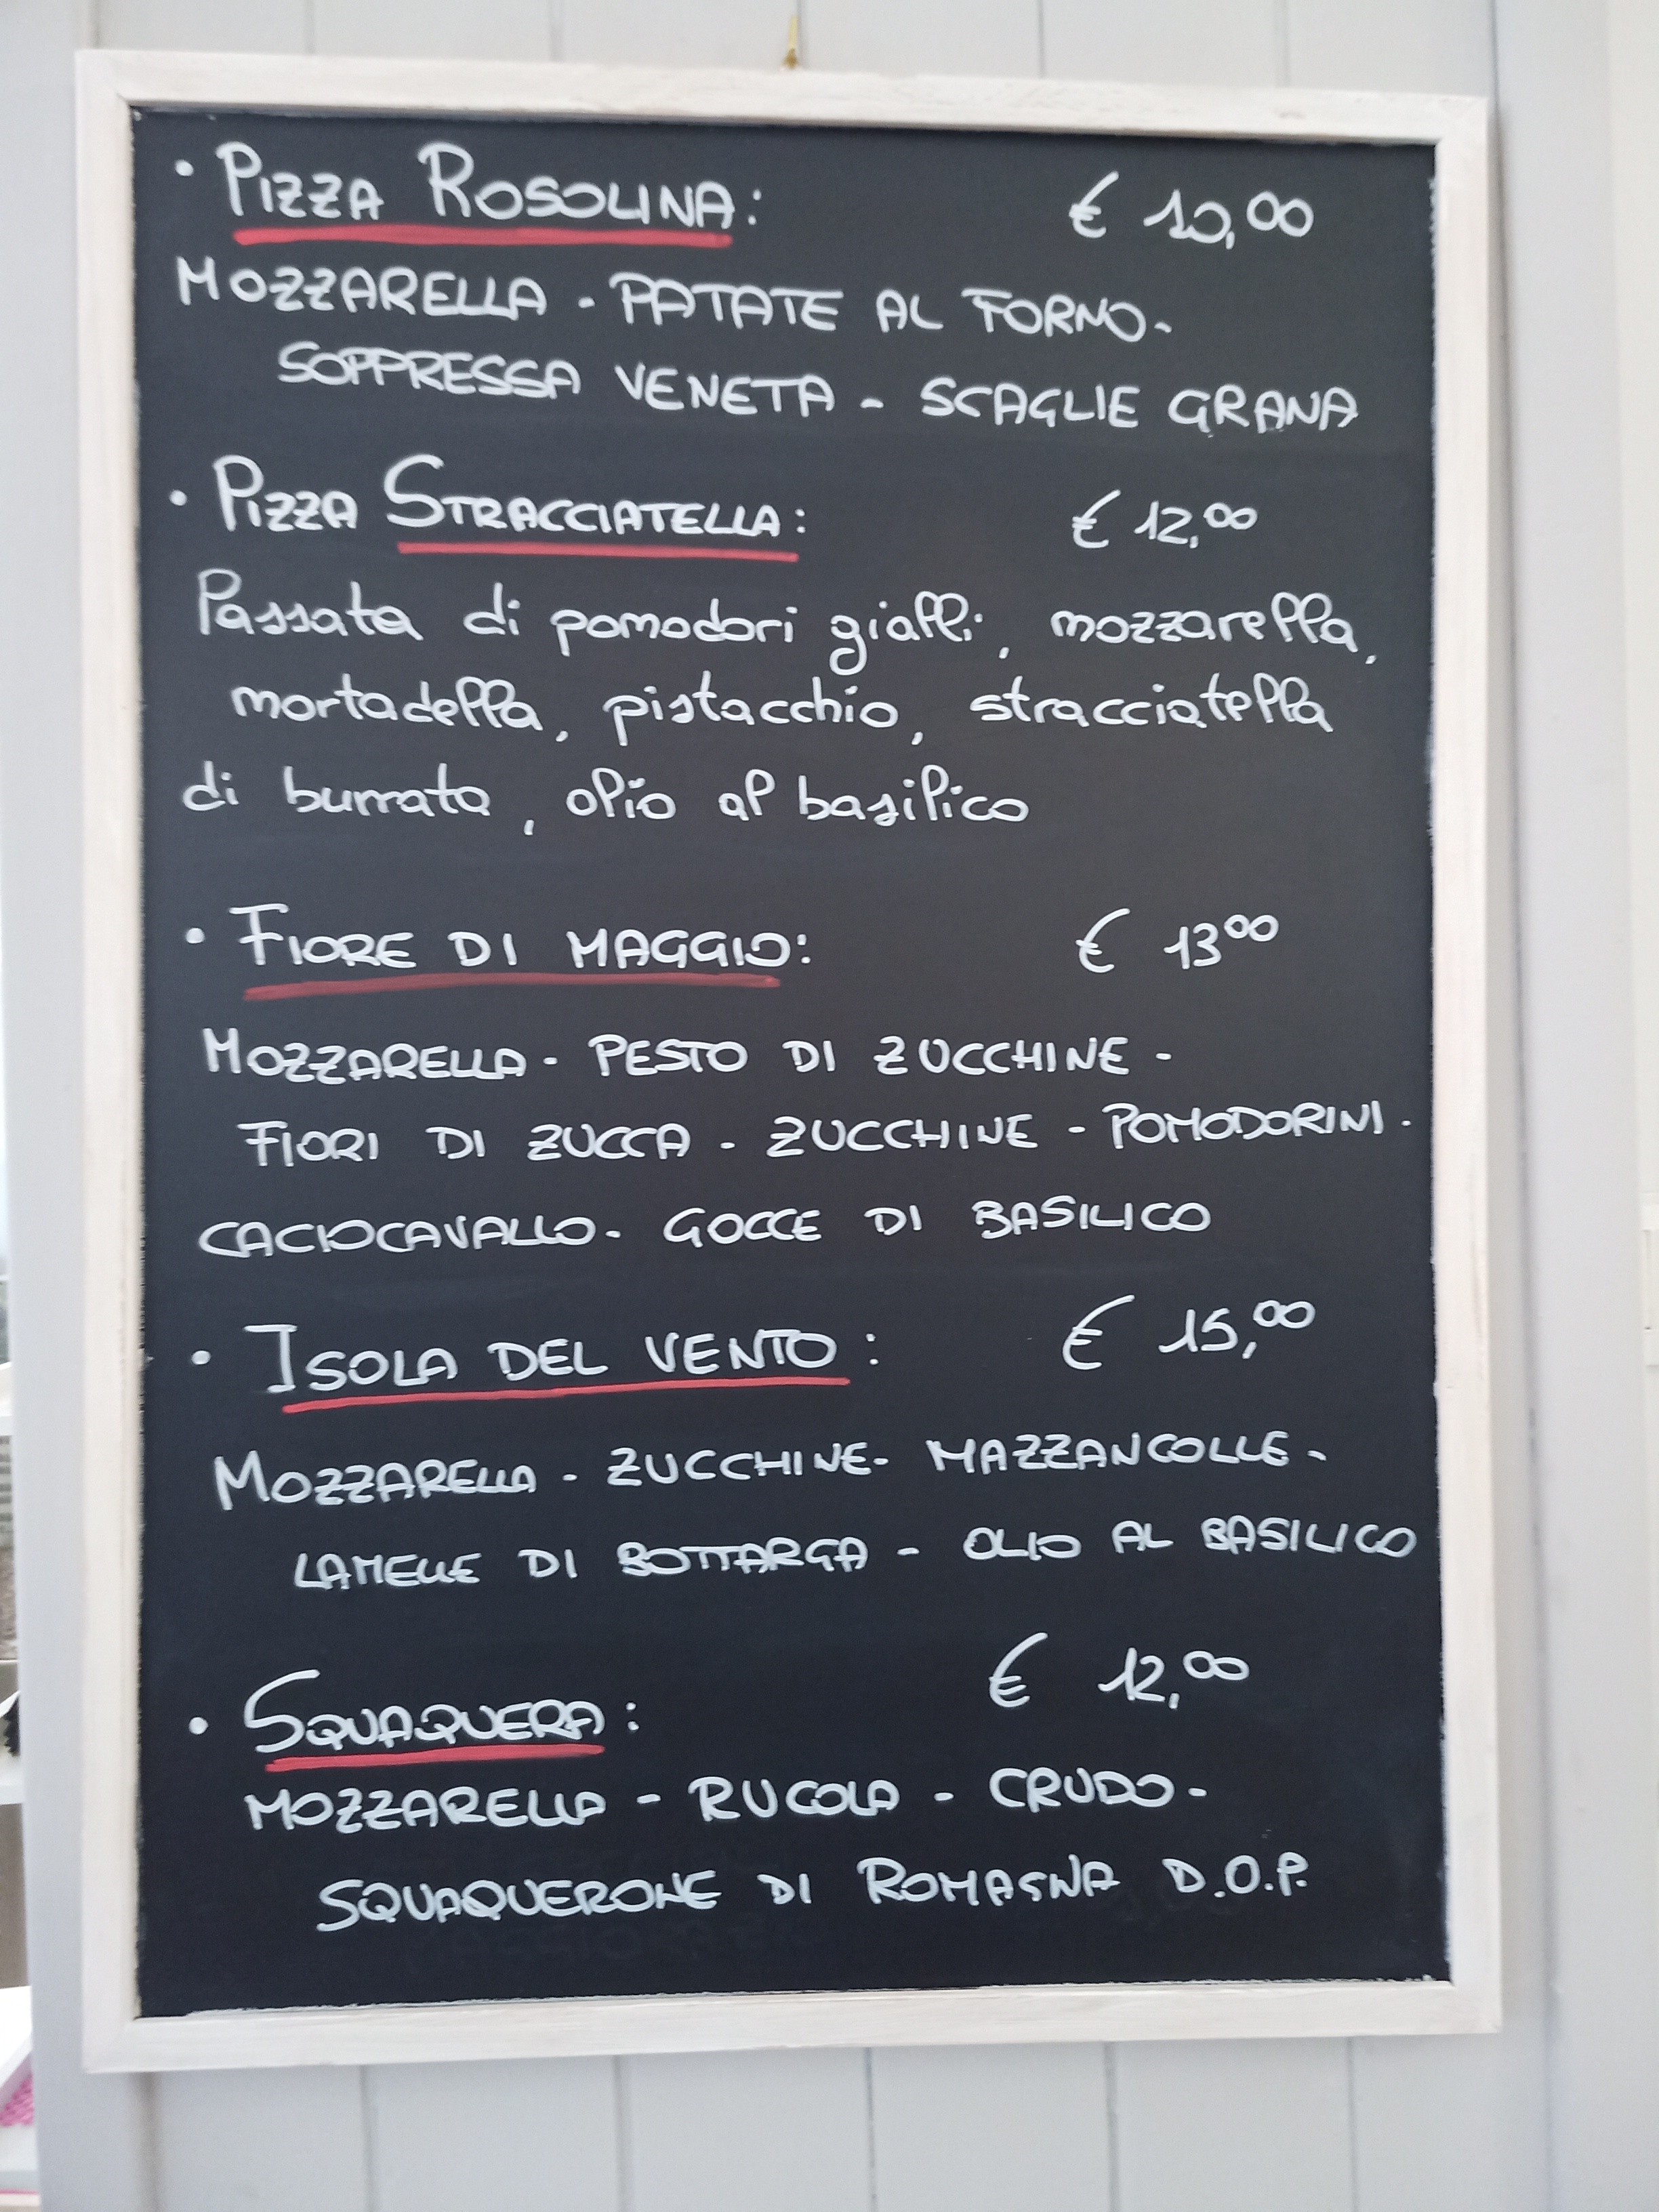 • PIZZA ROSOLINA: € 10,00
MOZZARELLA - PATATE AL FORNO -
SOPPRESSA VENETA - SCAGLIE GRANA
• PIZZA STRACCIATELLA: € 12,00
Passata di pomodori gialli, mozzarella,
mortadella, pistacchio, stracciatella
di burrata, olio al basilico
• FIORE DI MAGGIO: € 13 00
MOZZARELLA - PESTO DI ZUCCHINE -
FIORI DI ZUCCA - ZUCCHINE - POMODORINI -
CACIOCAVALLO - GOCCE DI BASILICO
• ISOLA DEL VENTO: € 15,00
MOZZARELLA - ZUCCHINE - MAZZANCOLLE -
LAMELLE DI BOTTARGA - OLIO AL BASILICO
• SQUAQUERA: € 12,00
MOZZARELLA - RUCOLA - CRUDO -
SQUAQUERONE DI ROMAGNA D.O.P.